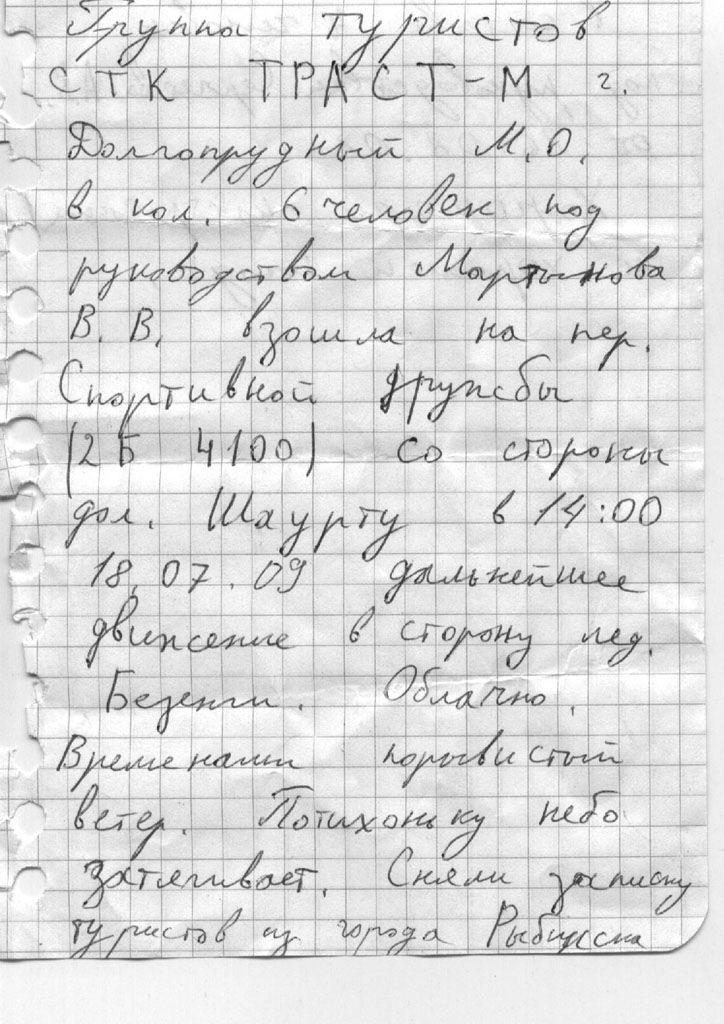 Группа туристов
СТК ТРАСТ-М г.
Долгопрудный М.О.
в кол. 6 человек под
руководством Мартынова
В.В. взошла на пер.
Спортивной дружбы
(2Б 4100) со стороны
дол. Шаурту в 14:00
18.07.09 дальнейшее
движение в сторону лед.
Безенги. Облачно.
Временами порывистый
ветер. Потихоньку небо
затягивает. Сняли записку
туристов из города Рыбинска